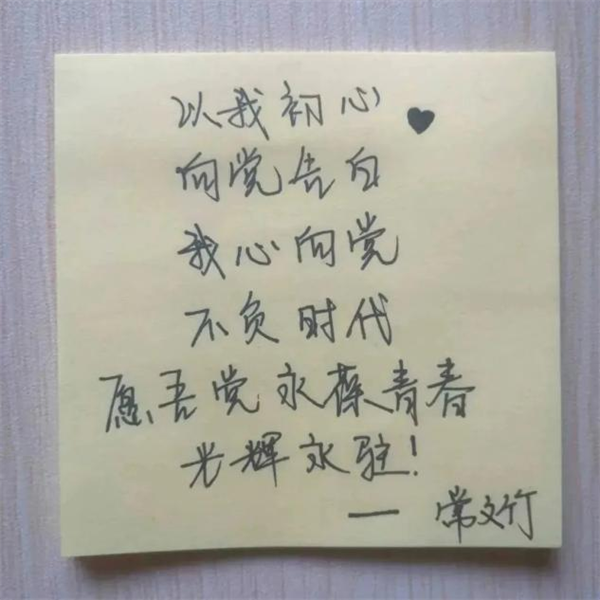 以我初心♥
向党告白
我心向党
不负时代
愿吾党永葆青春
光辉永驻!
—常文竹